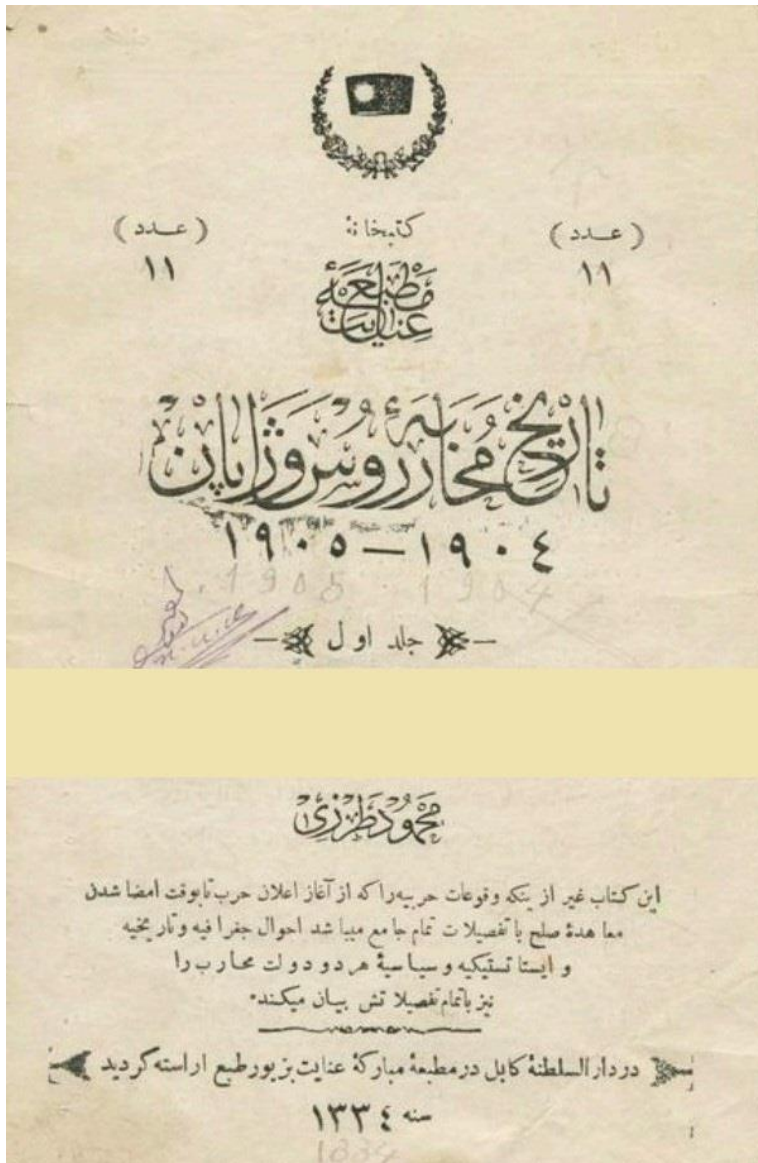 ( عدد ) کتبخانهٔ ( عدد )
۱۱ مَطبَعهٔ ۱۱
عِنایت
تاریخِ مُحَارَبَهٔ رُوسْ وَژاپانْ
۱۹۰۴ — ۱۹۰۵
1905 - 1904
جلد اول
محمود طرزی
این کتاب غیر از ینکه وقوعات حربیه را که از آغاز اعلان حرب تا بوقت امضا شدن
معاهدهٔ صلح با تفصیلات تمام جامع میباشد احوال جغرافیه و تاریخیه
و ایستاتستیکیه و سیاسیهٔ هر دو دولت محارب را
نیز باتمام تفصیلاتش بیان میکند.
در دارالسلطنهٔ کابل در مطبعهٔ مبارکهٔ عنایت بزیور طبع اراسته گردید
سنه ۱۳۳٤
1334